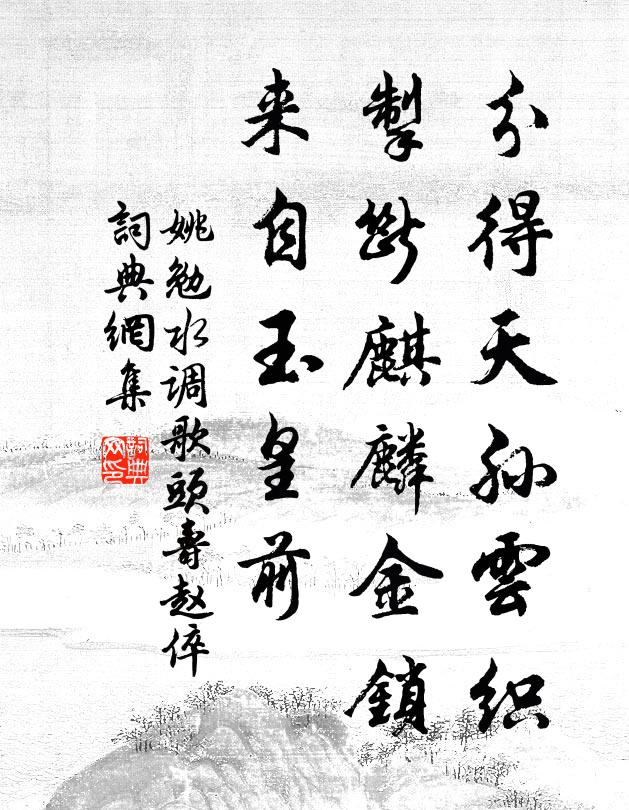 分得天孙雲织
掣断麒麟金鎖
来自玉皇前
姚勉水调歌頭壽赵倅
詞典網集
詞典网印